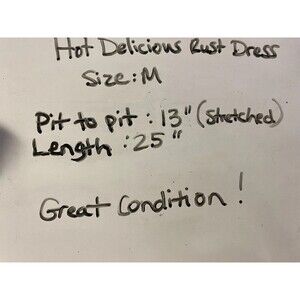 Hot Delicious Rust Dress
Size: M
Pit to pit : 13" (stretched)
Length : 25"
Great Condition !